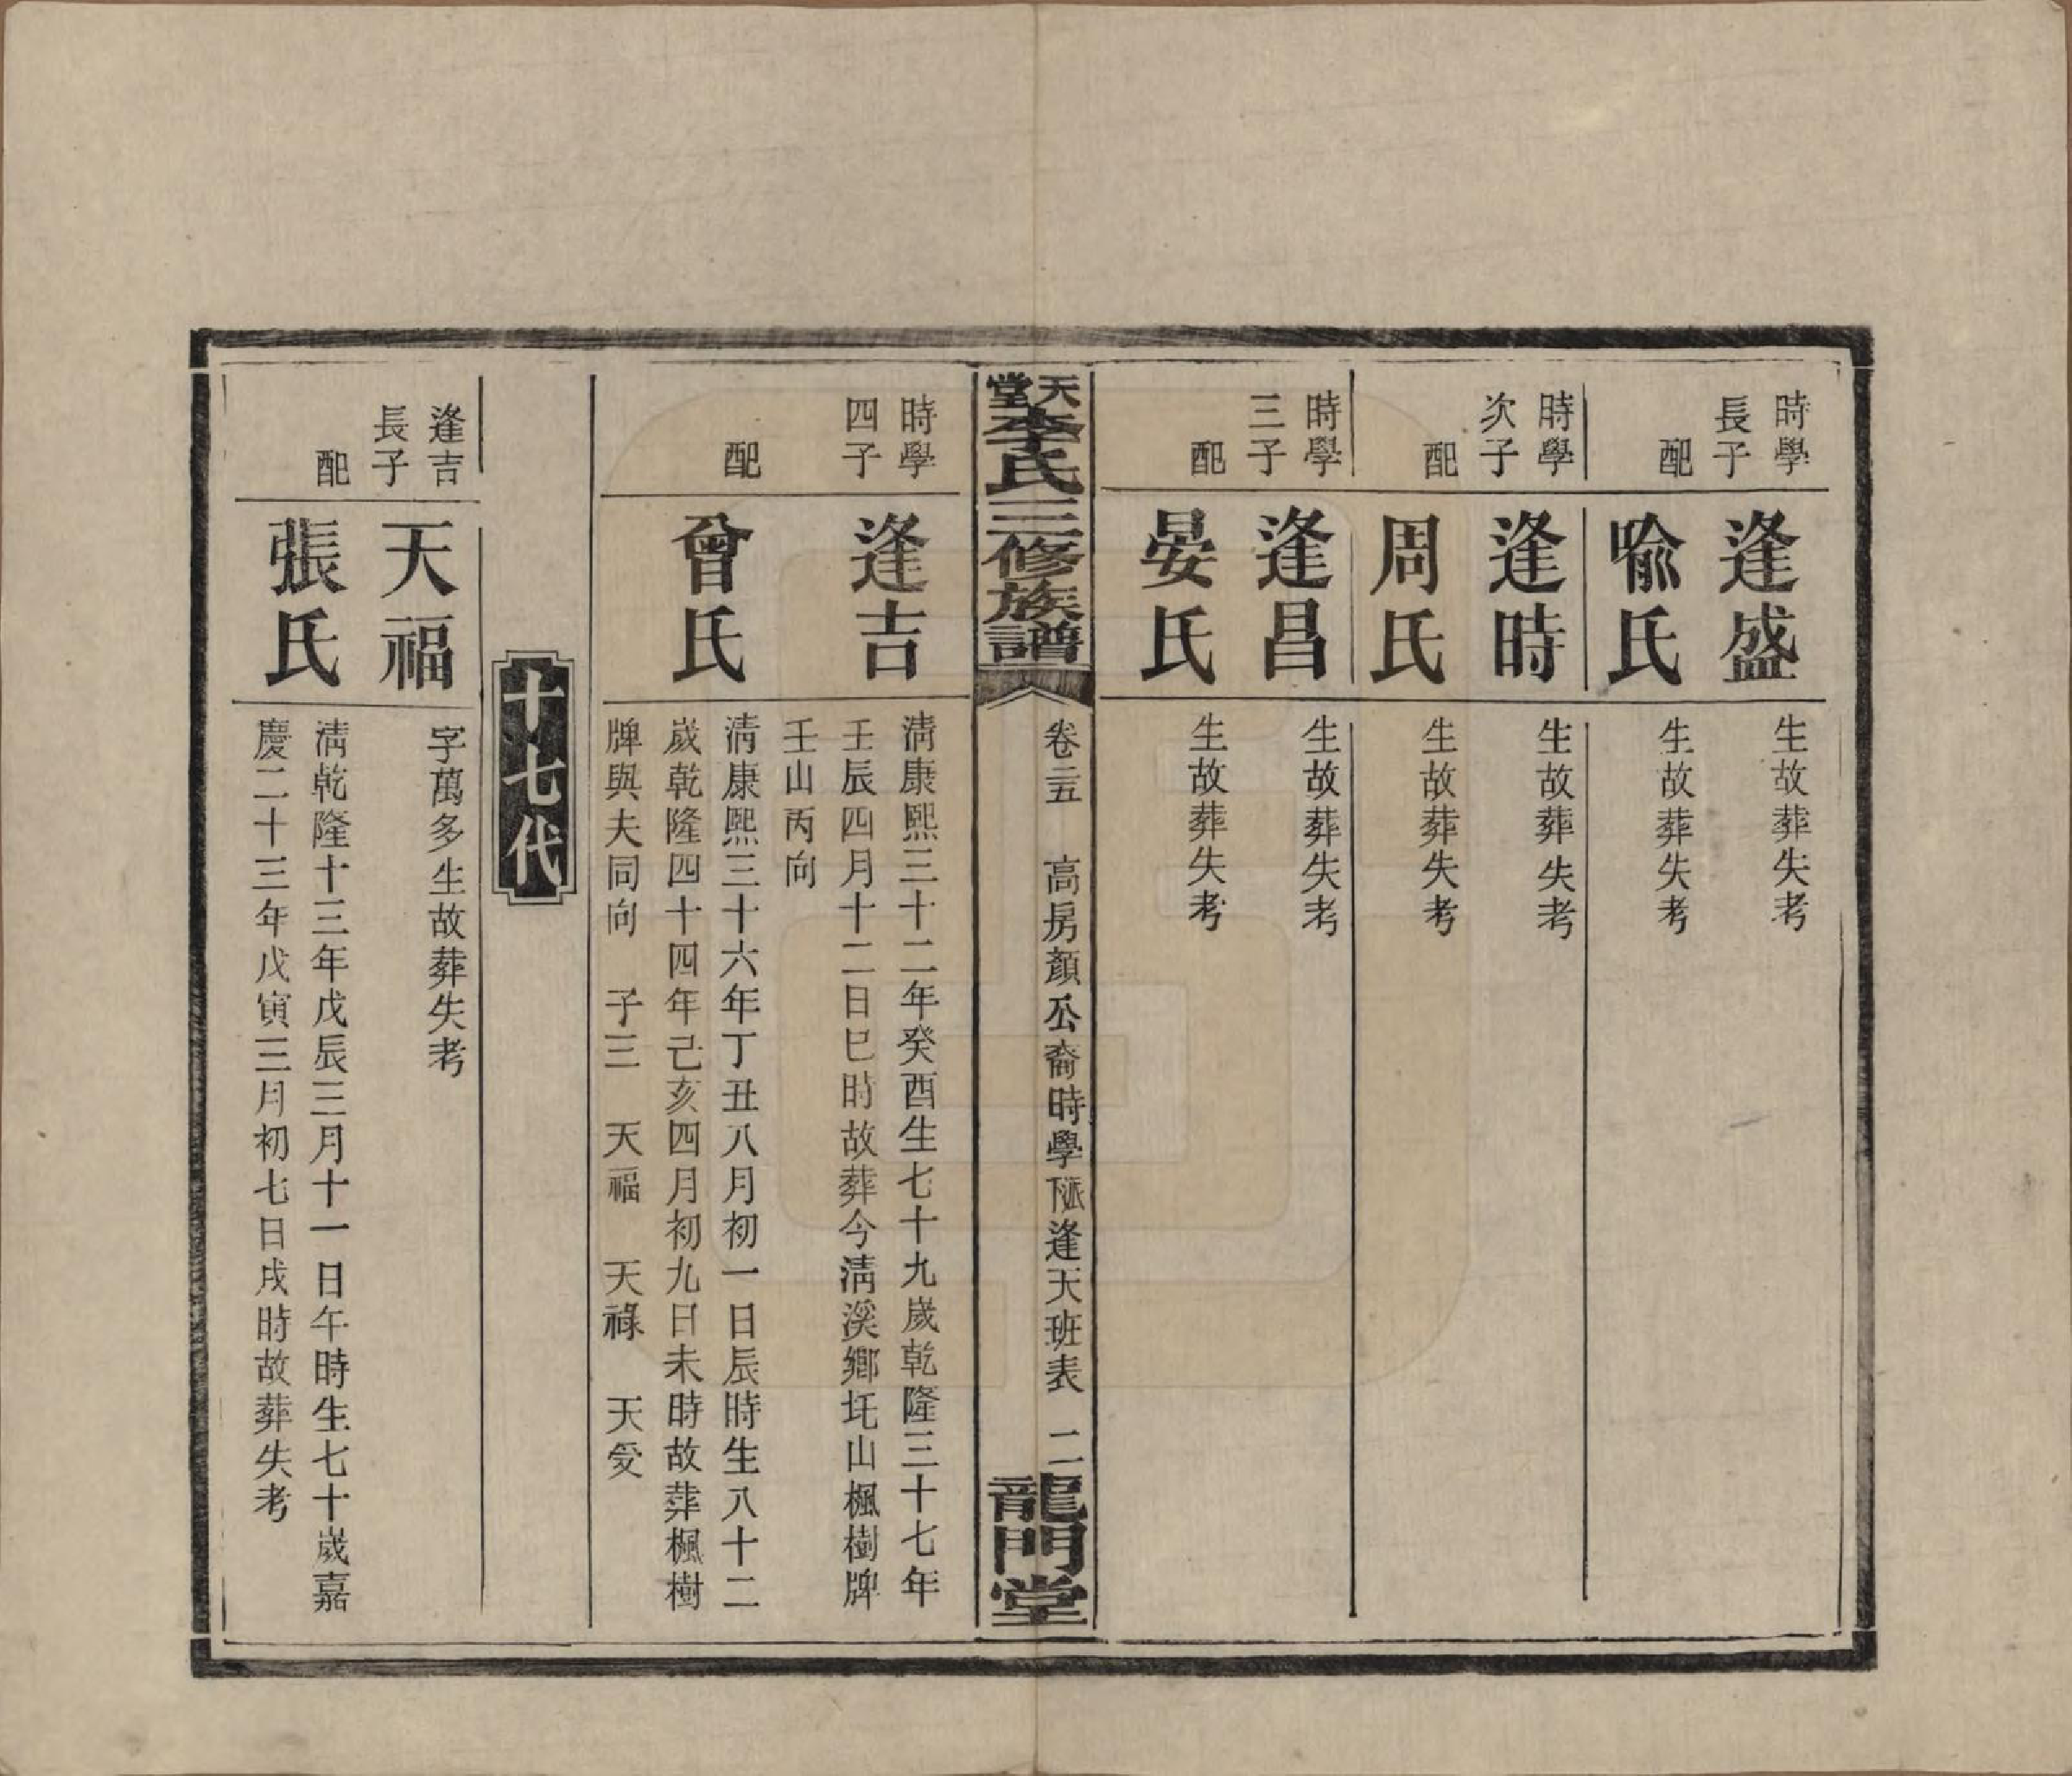 時學
長子
逢盛
生故葬失考
配
喩氏
生故葬失考
時學
次子
逢時
生故葬失考
配
周氏
生故葬失考
時學
三子
逢昌
生故葬失考
配
晏氏
生故葬失考
天堂李氏三修族譜
卷二五 高房顏公裔時學派逢天班表 二
龍門堂
時學
四子
逢吉
淸康熙三十二年癸酉生七十九歲乾隆三十七年
壬辰四月十二日巳時故葬今淸溪鄕圫山楓樹牌
壬山丙向
配
曾氏
淸康熙三十六年丁丑八月初一日辰時生八十二
歲乾隆四十四年己亥四月初九日未時故葬楓樹
牌與夫同向 子三 天福 天祿 天受
十七代
逢吉
長子
天福
字萬多生故葬失考
配
張氏
淸乾隆十三年戊辰三月十一日午時生七十歲嘉
慶二十三年戊寅三月初七日戌時故葬失考